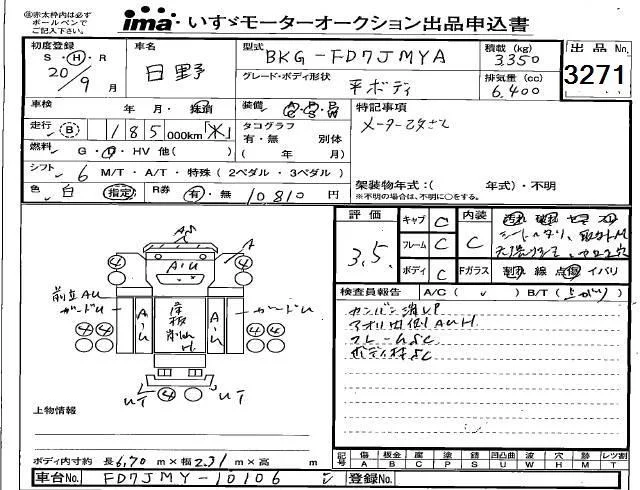 ㊟赤太枠内は必ず
ボールペンで
ご記入下さい。
ima いすゞモーターオークション出品申込書
初度登録
S・H・R
20年 9月
車名
日野
型式
BKG-FD7JMYA
積載(kg)
3350
グレード・ボディ形状
平ボディ
排気量(cc)
6.400
出品No.
3271
車検
年 月・抹消
装備
特記事項
走行 B 185 000km「米」
タコグラフ
有・無 別体
( 年 月)
メーター改ざん
燃料 G・D・HV 他( )
シフト 6 M/T・A/T・特殊(2ペダル・3ペダル)
色 白 指定
R券 有・無 10810円
架装物年式:( 年式)・不明
※不明の場合は、不明に○をする。
評価
3.5
キャブ C
フレーム C
ボディ C
内装
C
シートヘタリ、
Fガラス 割・線・点・傷・イバリ
検査員報告 A/C( ) B/T(上がり)
カンバン消しP
アオリ内側AUH
フレームSC
ボディ枠SC
A
AS
A
4
4
AiU
前立AU
ガードU
A・U
床板
削れ
H
A・U
ガードU
4 4
4 4
UT 4 UT
上物情報
ボディ内寸約 長6.70m×幅2.31m×高 m
記号
傷 A
板金 B
腐 C
塗 P
錆 S
凹凸曲 U
波 W
穴 H
跡 M
レツ割 T
車台No. FD7JMY-10106
登録No.